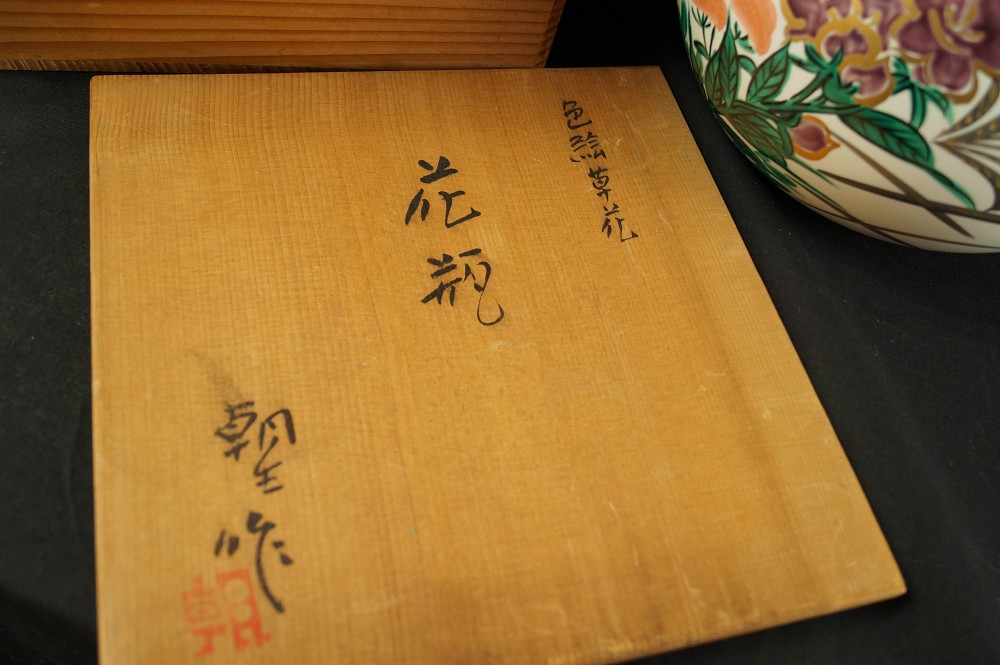 色絵草花
花瓶
朝生作